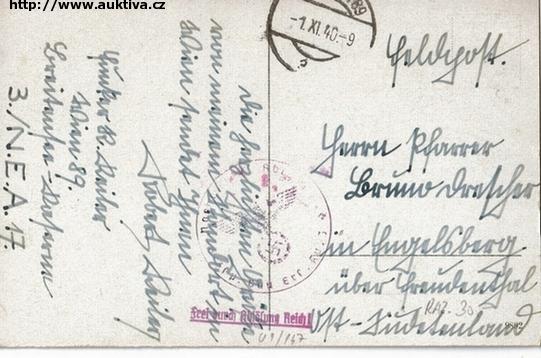 http://www.auktiva.cz
89
-1.XI.40-9
Feldpost.
Herrn Pfarrer
Bruno Drescher
in Engelsberg
über Freudenthal
Ost-Sudetenland
Die herzlichsten Grüße
von meinem Standort in
Wien sendet Ihnen
Robert Weiler
Funker R. Weiler
Wien 89.
Breitensee-Kaserne
3./N.E.A. 17.
Frei durch Ablösung Reich!
RAZ. 30